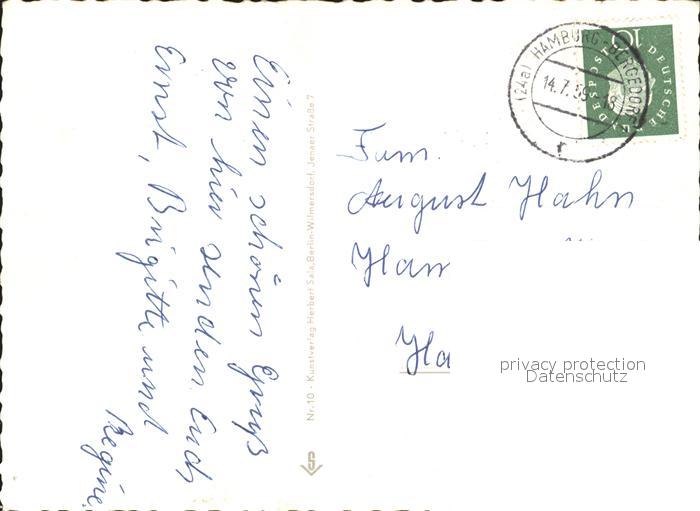 Einen schönen Gruß
von hier senden Euch
Ernst, Brigitte und
Regine.
Nr. 10 · Kunstverlag Herbert Sala, Berlin-Wilmersdorf, Jenaer Straße 7
S
(24a) HAMBURG-BERGEDORF
14.7.
r
10
DEUTSCHE
BUNDESPOST
Fam.
August Hahn
Ham
Ha
privacy protection
Datenschutz